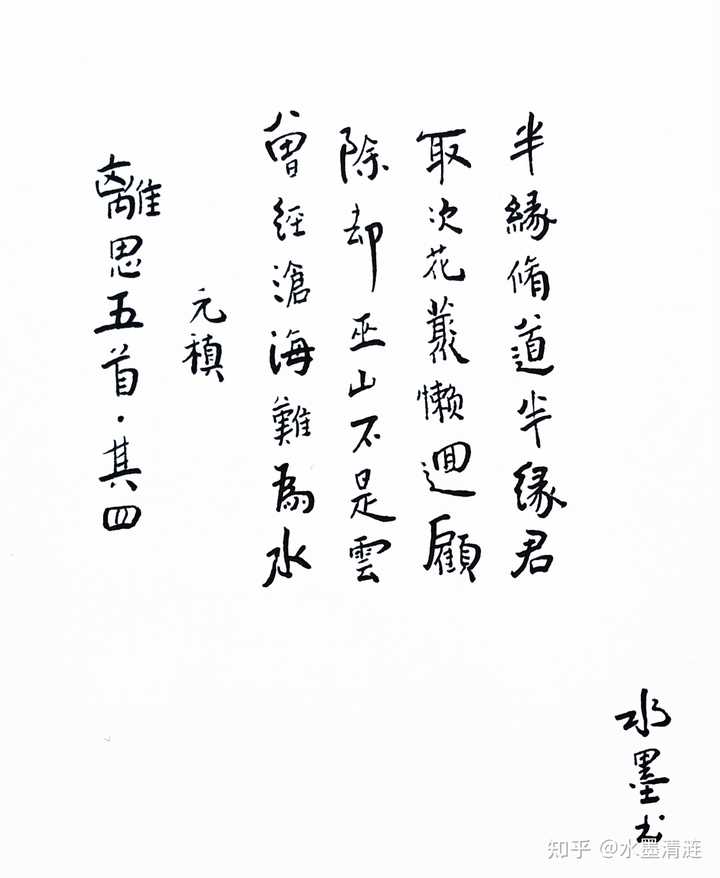 離思五首·其四
元稹
曾經滄海難為水
除却巫山不是雲
取次花叢懶迴顧
半緣脩道半緣君
水墨书
知乎 @水墨清涟